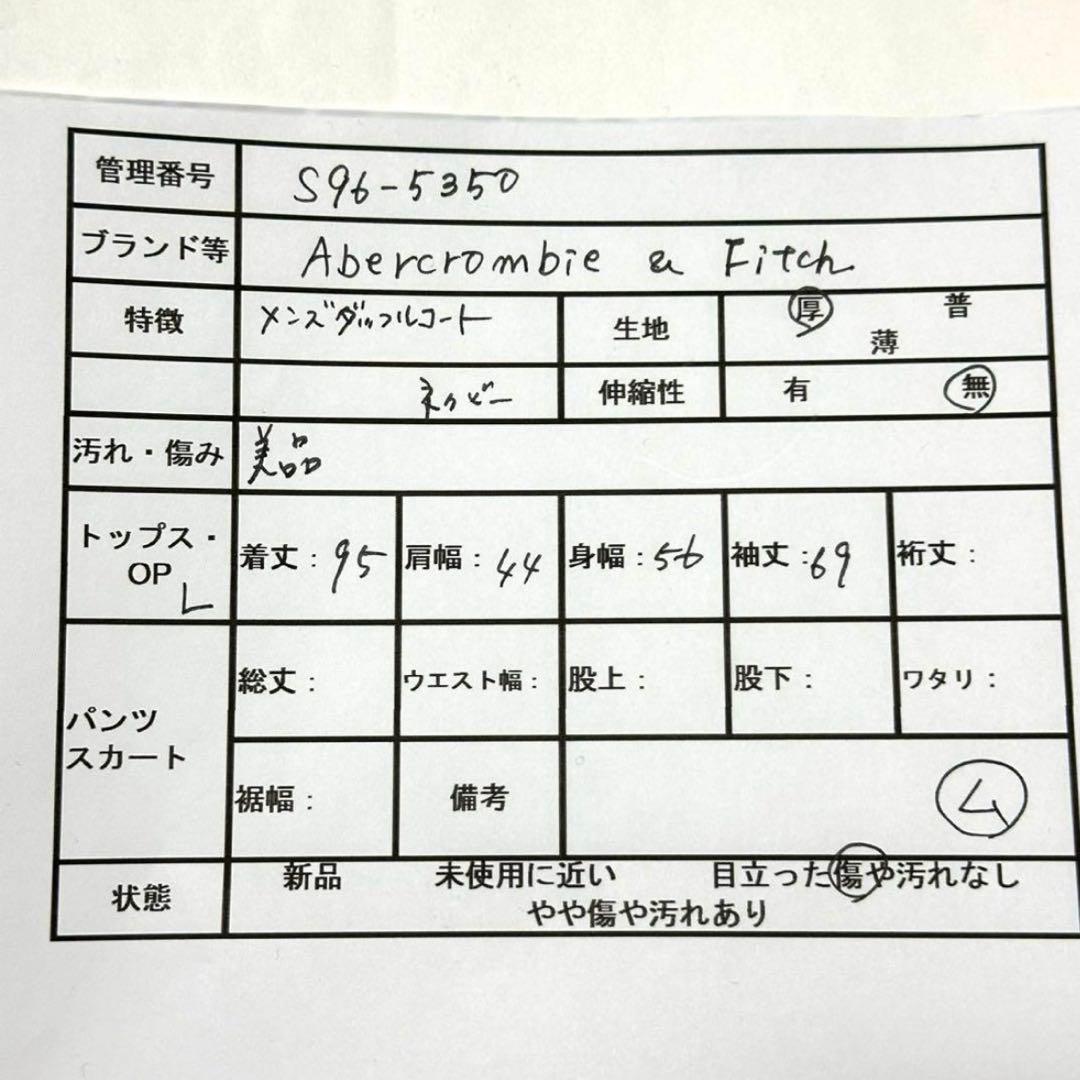 管理番号 S96-5350
ブランド等 Abercrombie & Fitch
特徴 メンズダッフルコート 生地 厚 普 薄
ネイビー 伸縮性 有 無
汚れ・傷み 美品
トップス・OP L 着丈：95 肩幅：44 身幅：56 袖丈：69 裄丈：
パンツ スカート 総丈： ウエスト幅： 股上： 股下： ワタリ：
裾幅： 備考 ム
状態 新品 未使用に近い 目立った傷や汚れなし
やや傷や汚れあり